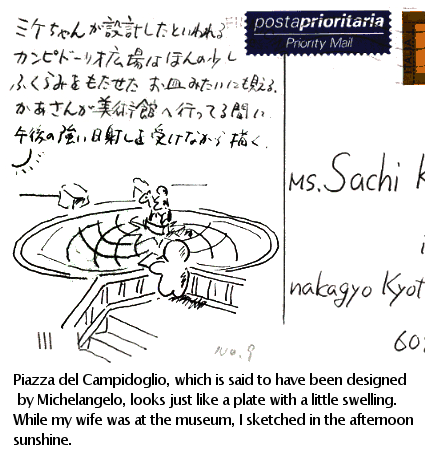 ミケちゃんが設計したといわれる
カンピドーリオ広場はほんの少し
ふくらみをもたせた お皿みたいにも見える。
かあさんが美術館へ行ってる間に
午後の強い日射しを受けながら描く。
postaprioritaria
Priority Mail
ITALIA
Ms. Sachi K
nakagyo Kyot
60
No.9
Piazza del Campidoglio, which is said to have been designed
by Michelangelo, looks just like a plate with a little swelling.
While my wife was at the museum, I sketched in the afternoon
sunshine.